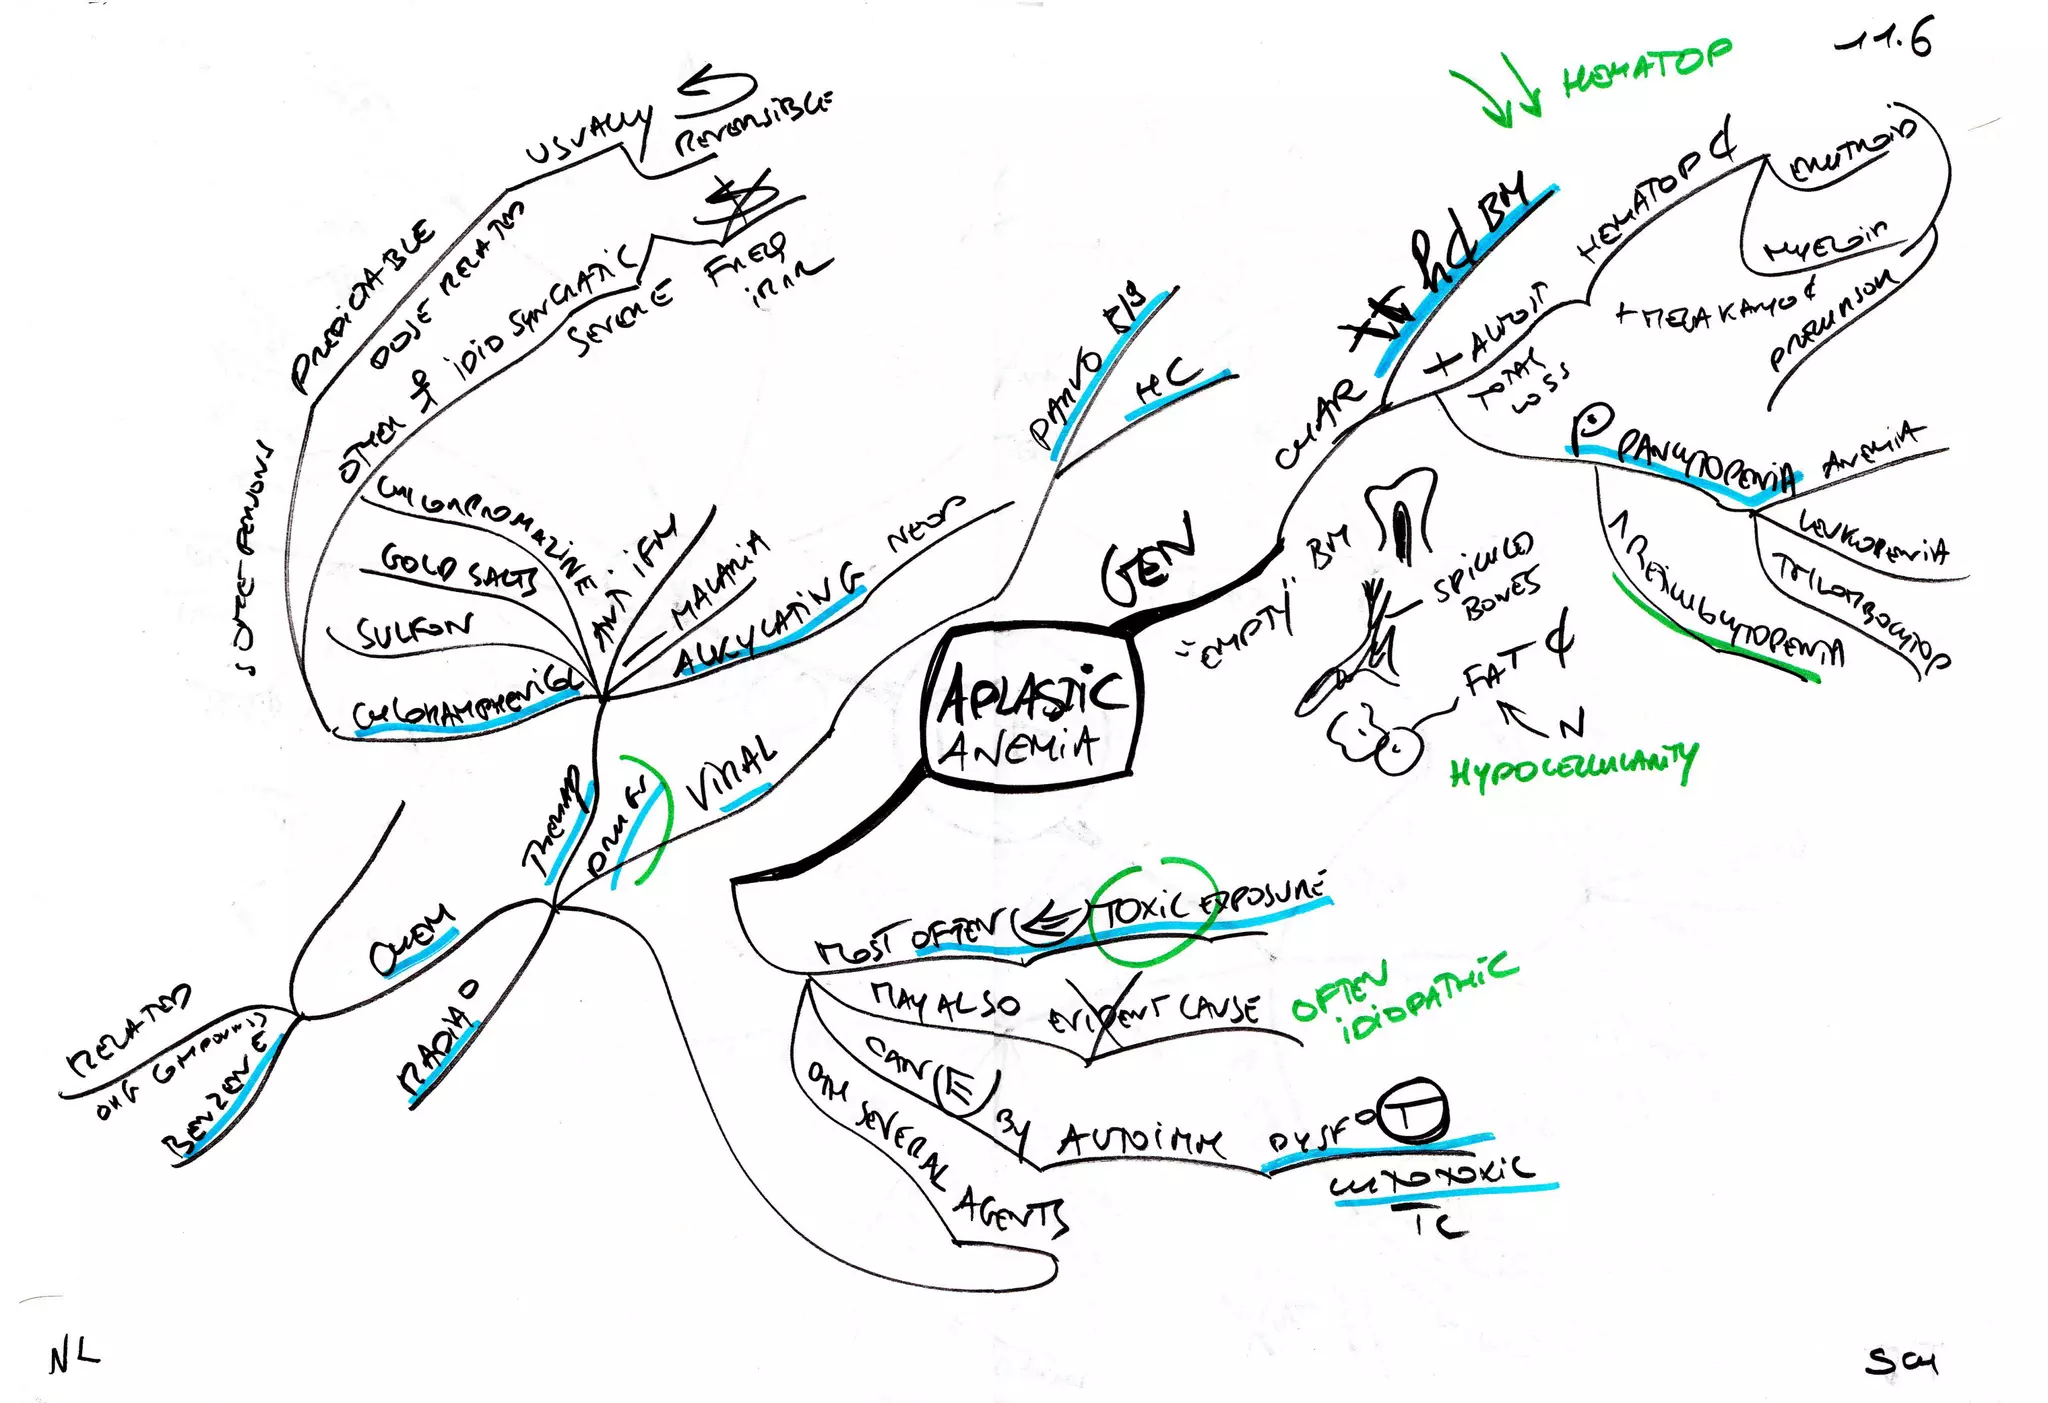 11.6
HEMATOP
USUALLY
REVERSIBLE
PREDICTABLE
DOSE RELATED
OTHER
IDIOSYNCRATIC
SEVERE
FREQ
IRRR
SOME PERSONS
CHLORPROMAZINE
GOLD SALTS
SULFON
CHLORAMPHENICOL
ANTI IFM
MALARIA
ALKYLATING
NEOP
PARVO B19
HC
VIRAL
THERAP
DRUGS
CHEM
RELATED
ORG COMPOUNDS
BENZENE
RADIAO
APLASTIC
ANEMIA
GEN
CHAR
BM
+ ALMOST
TOTAL
LOSS
HEMATOP ₵
ERYTHROID
MYELOID
+ MEGAKARYO ₵
PRECURSOR
PANCYTOPENIA
ANEMIA
LEUKOPENIA
THROMBOCYTOP
RETICULOCYTOPENIA
"EMPTY" BM
SPICULED
BONES
FAT ₵
N
HYPOCELLULARITY
MOST OFTEN (←) TOXIC EXPOSURE
MAY ALSO EVIDENT CAUSE
OFTEN
IDIOPATHIC
CAN BY AUTOIMM DYSF T
CYTOTOXIC
TC
SEVERAL
AGENTS
NL